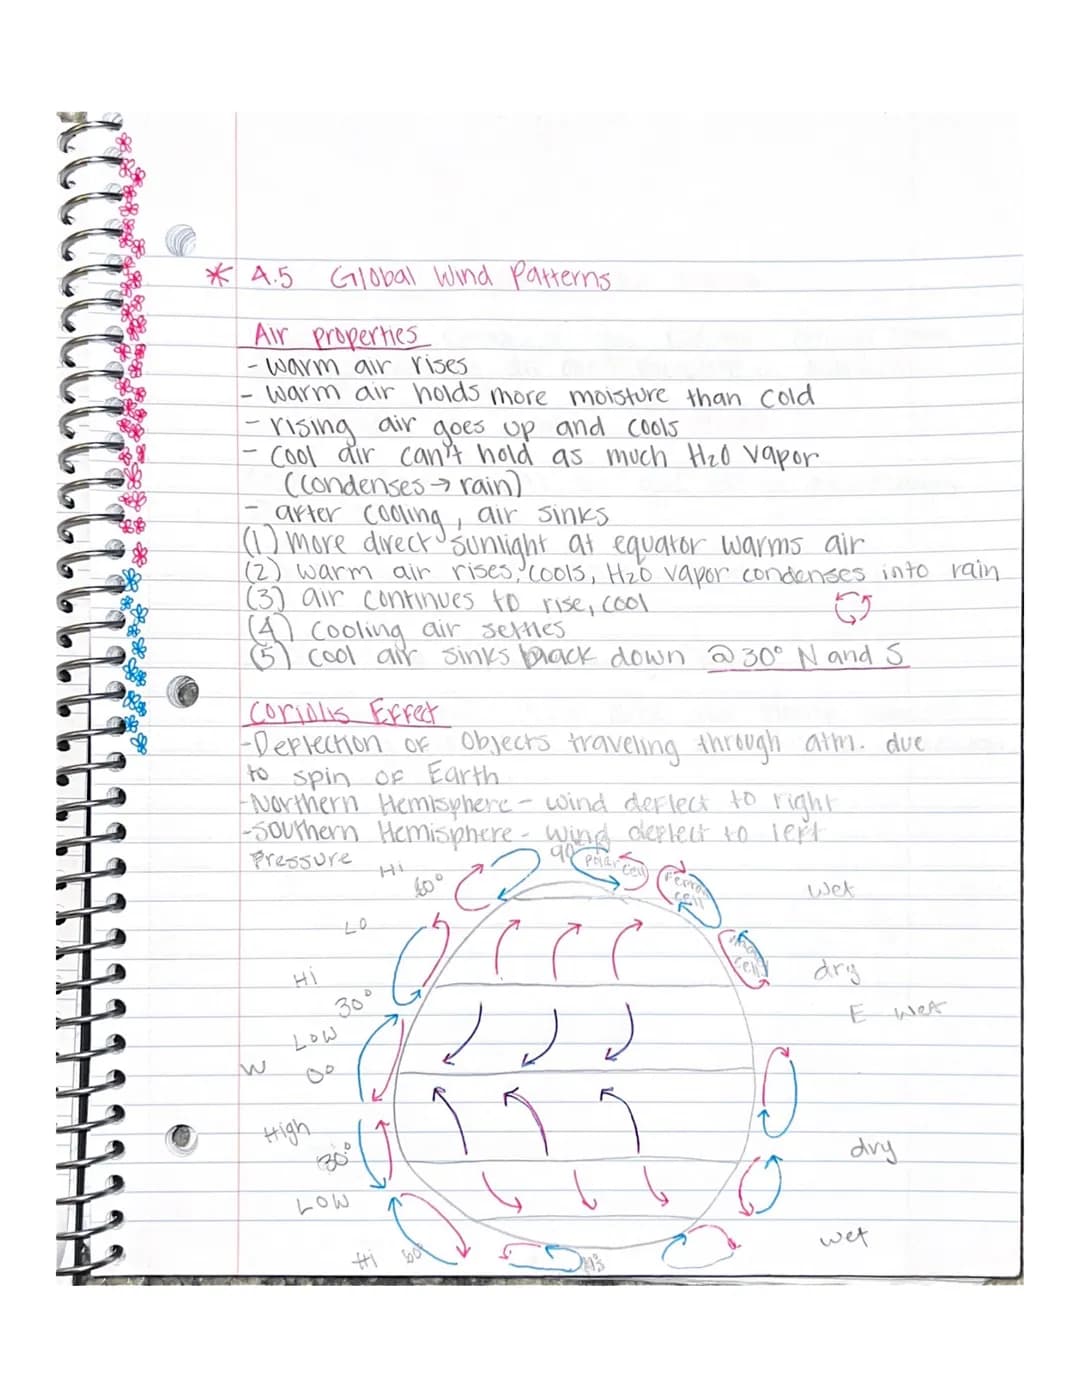 * 4.5 Global Wind Patterns
Air properties
- warm air rises
- warm air holds more moisture than cold
- rising air goes up and cools
- cool air can't hold as much H2O vapor
(condenses → rain)
- after cooling, air sinks
(1) more direct sunlight at equator warms air
(2) warm air rises, cools, H2O vapor condenses into rain
(3) air continues to rise, cool
(4) cooling air settles
(5) cool air sinks back down @ 30° N and S
Coriolis Effect
-Deflection of Objects traveling through atm. due
to spin of Earth
-Northern Hemisphere - wind deflect to right
-Southern Hemisphere - wind deflect to left
Pressure
Hi
60°
90
Polar cell
cell
wet
LO
Hi
dry
30°
E wet
LOW
W 0°
High
30°
dry
LOW
wet
Hi 60°